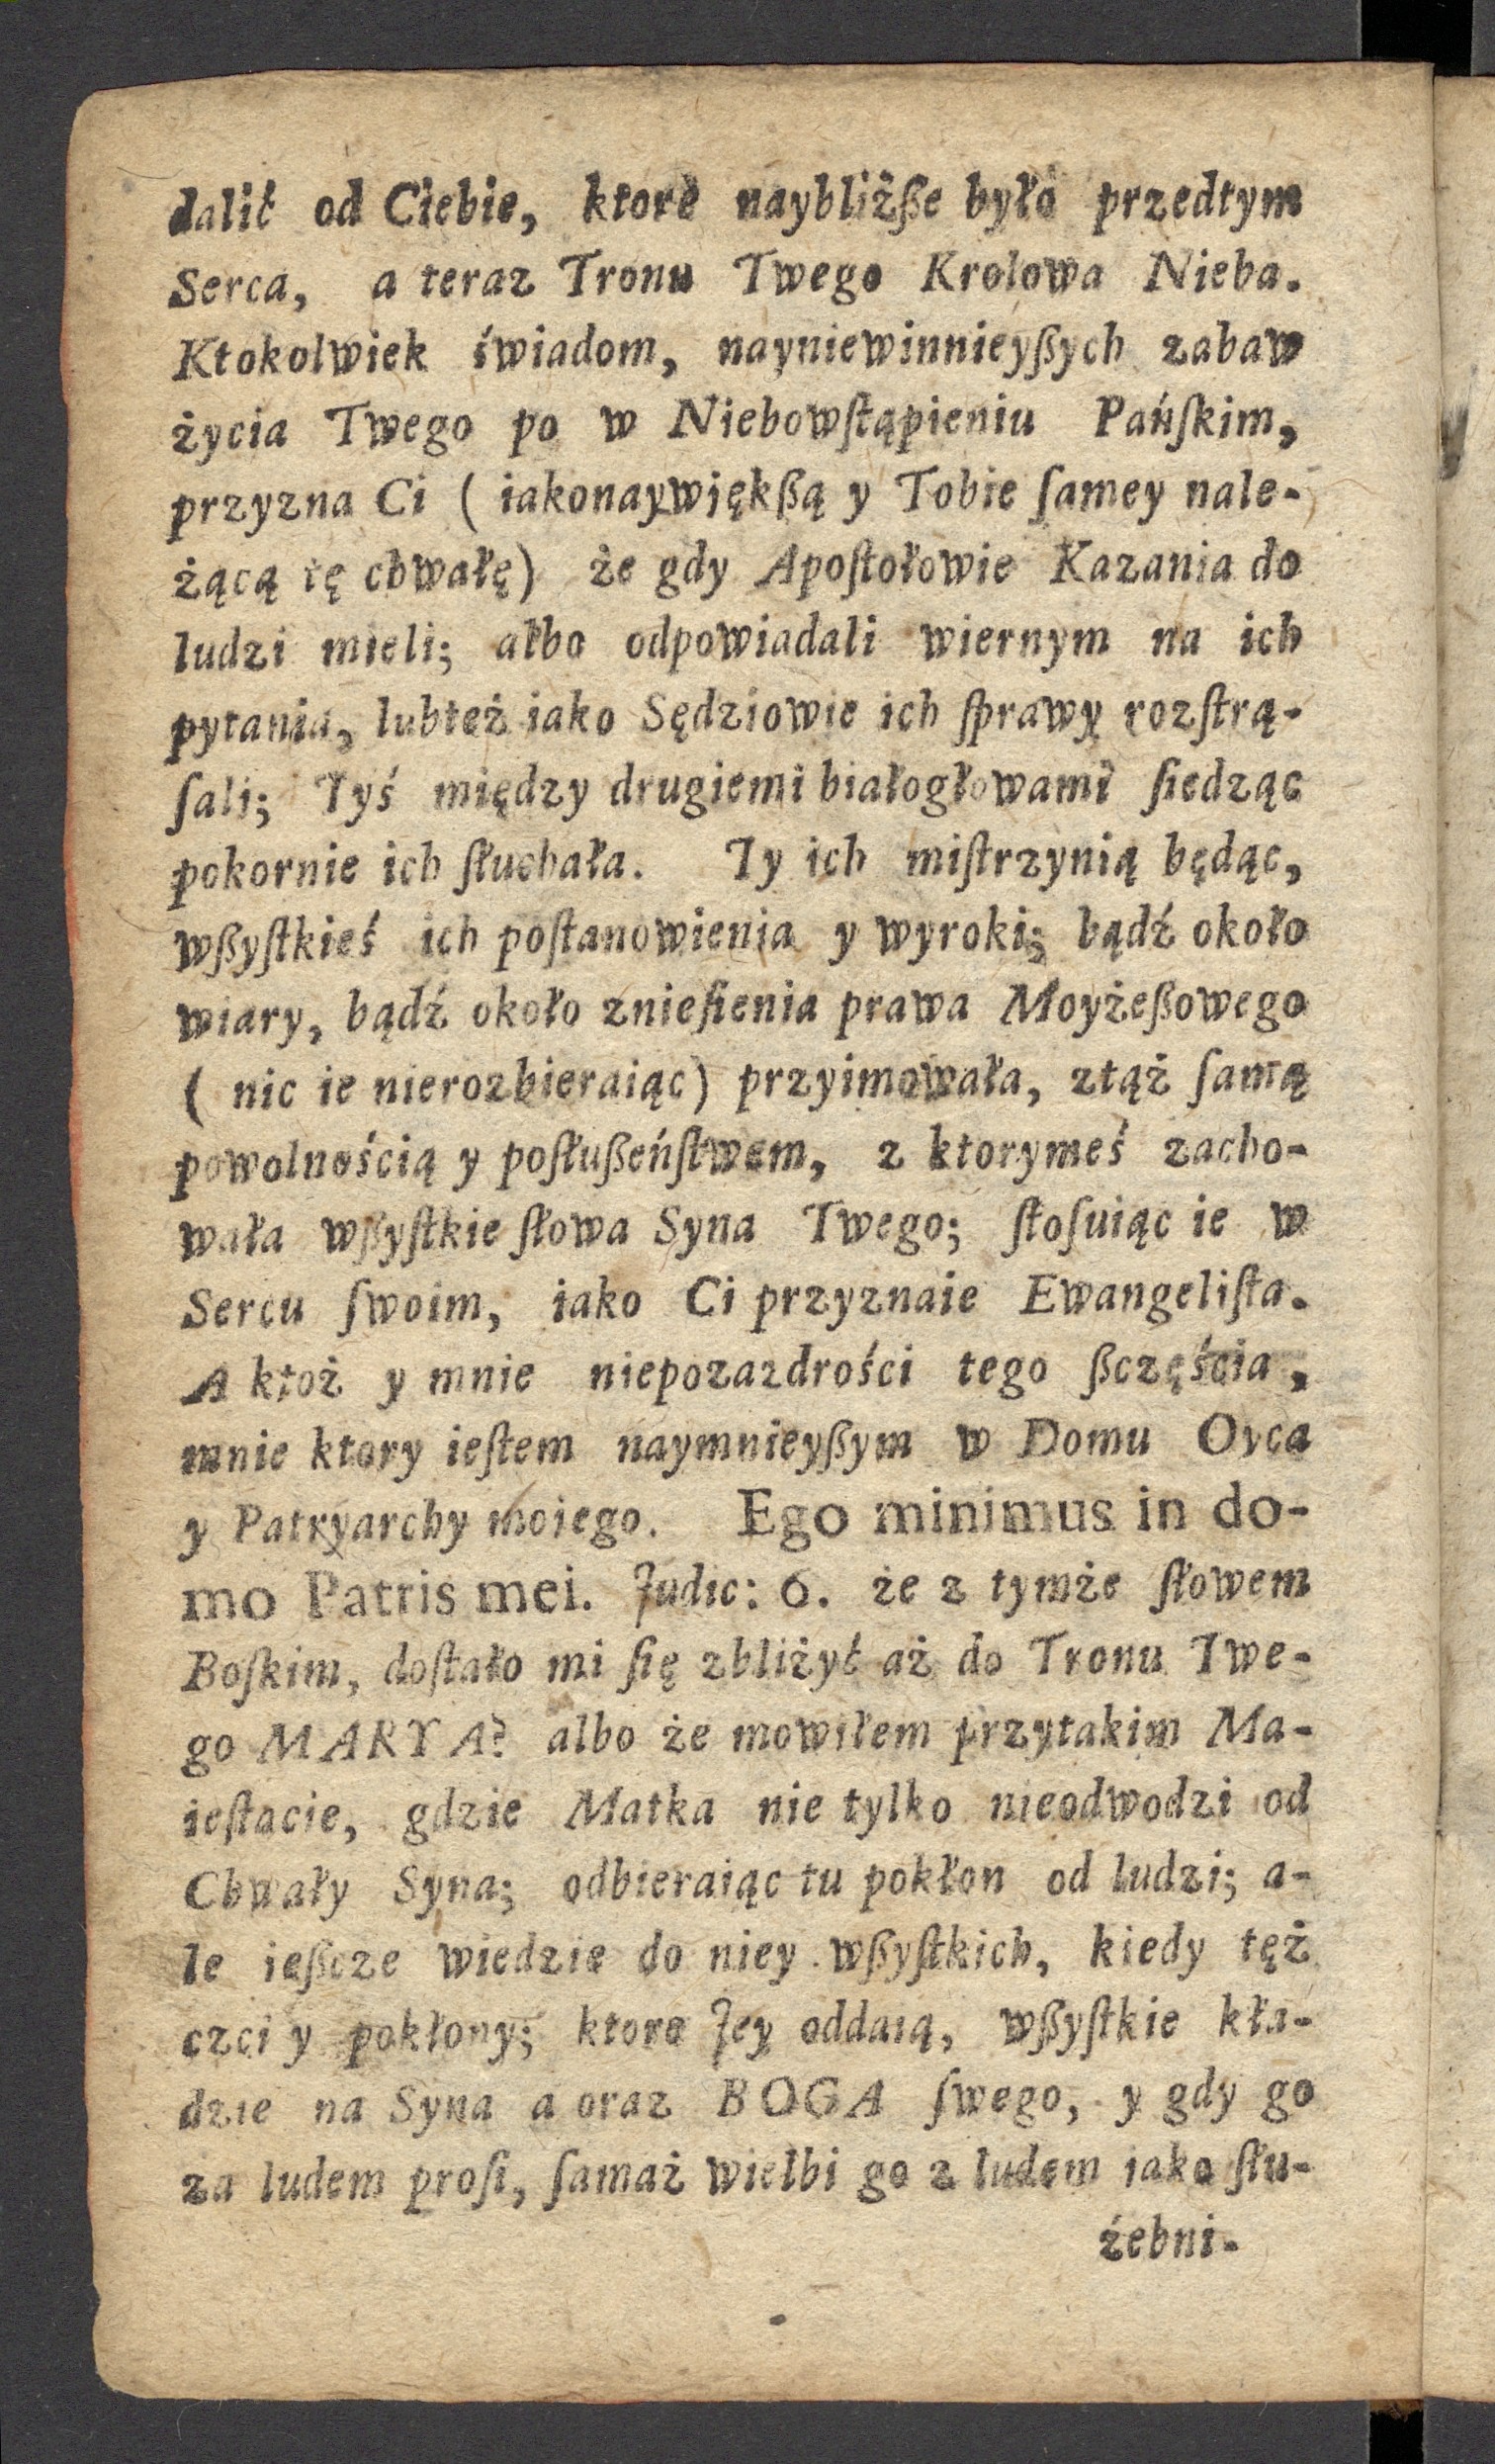 dalić od Ciebie, ktorè naybliżßе było przedtym
Serca, a teraz Tronu Twego Krolowa Nieba.
Ktokolwiek świadom, nayniewinnieyßych zabaw
życia Twego po w Niebowſtąpieniu Pańſkim,
przyzna Ci ( iakonaywiękßą y Tobie ſamey nale-
żącą tę chwałę) że gdy Apoſtołowie Kazania do
ludzi mieli; albo odpowiadali wiernym na ich
pytania, lubteż iako Sędziowie ich ſprawy rozſtrą-
ſali; Tyś między drugiemi białogłowami ſiedząc
pokornie ich ſłuchała. Ty ich miſtrzynią będąc,
wßyſtkieś ich poſtanowienia y wyroki; bądź około
wiary, bądź około znieſienia prawa Moyżeßowego
( nic ie nierozbieraiąc) przyimowała, ztąż ſamą
powolnością y poſłußeńſtwem, z ktorymeś zacho-
wała wßyſtkie ſłowa Syna Twego; ſtoſuiąc ie w
Sercu ſwoim, iako Ci przyznaie Ewangeliſta.
A ktoż y mnie niepozazdrości tego ßczęścia,
mnie ktory ieſtem naymnieyßym w Domu Oyca
y Patryarchy moiego. Ego minimus in do-
mo Patris mei. Judic: 6. że z tymże ſłowem
Boſkim, doſtało mi ſię zbliżyć aż do Tronu Twe-
go MARYA? albo że mowiłem przytakim Ma-
ieſtacie, gdzie Matka nie tylko nieodwodzi od
Chwały Syna; odbieraiąc tu pokłon od ludzi; a-
le ießcze wiedzie do niey wßyſtkich, kiedy też
czci y pokłony; ktore Jey oddaią, wßyſtkie kła-
dzie na Syna a oraz BOGA ſwego, y gdy go
za ludem proſi, ſamaż wielbi go z ludem iako ſłu-
żebni-